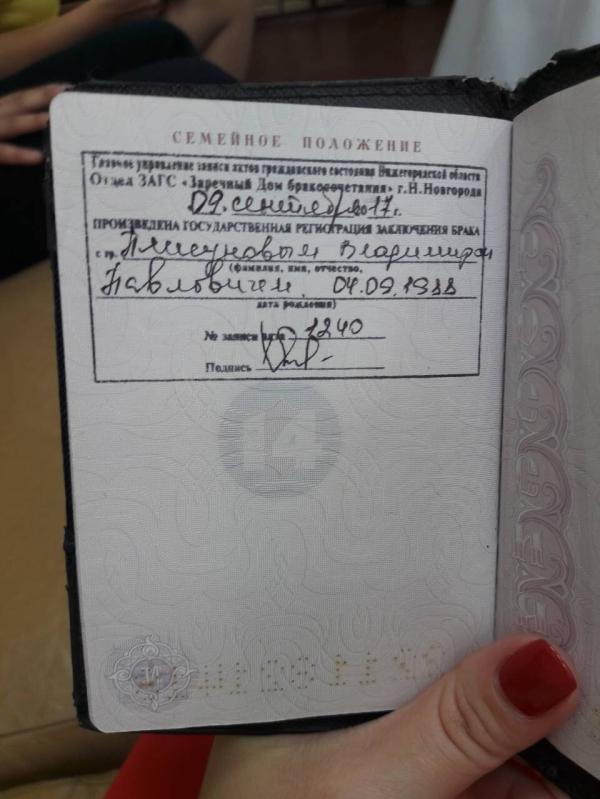 СЕМЕЙНОЕ ПОЛОЖЕНИЕ
Главное управление записи актов гражданского состояния Нижегородской области
Отдел ЗАГС «Заречный Дом бракосочетания» г.Н.Новгорода
09. сентября 2017 г.
ПРОИЗВЕДЕНА ГОСУДАРСТВЕННАЯ РЕГИСТРАЦИЯ ЗАКЛЮЧЕНИЯ БРАКА
с гр. Владимиром
(фамилия, имя, отчество,
Павловичем 04.09.1988
дата рождения)
№ записи акта 1240
Подпись
14
14